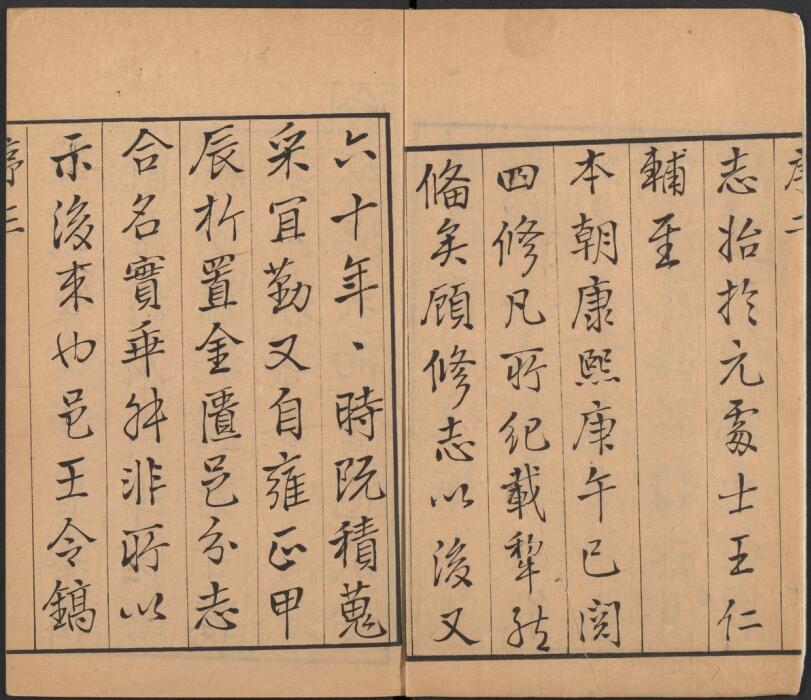 序二
志始於元處士王仁
輔至
本朝康熙庚午已閱
四修凡所紀載犂然
備矣顧修志以後又
六十年、時既積蒐
采宜勤又自雍正甲
辰析置金匱邑分志
合名實乖舛非所以
示後来也邑王令鎬
序三